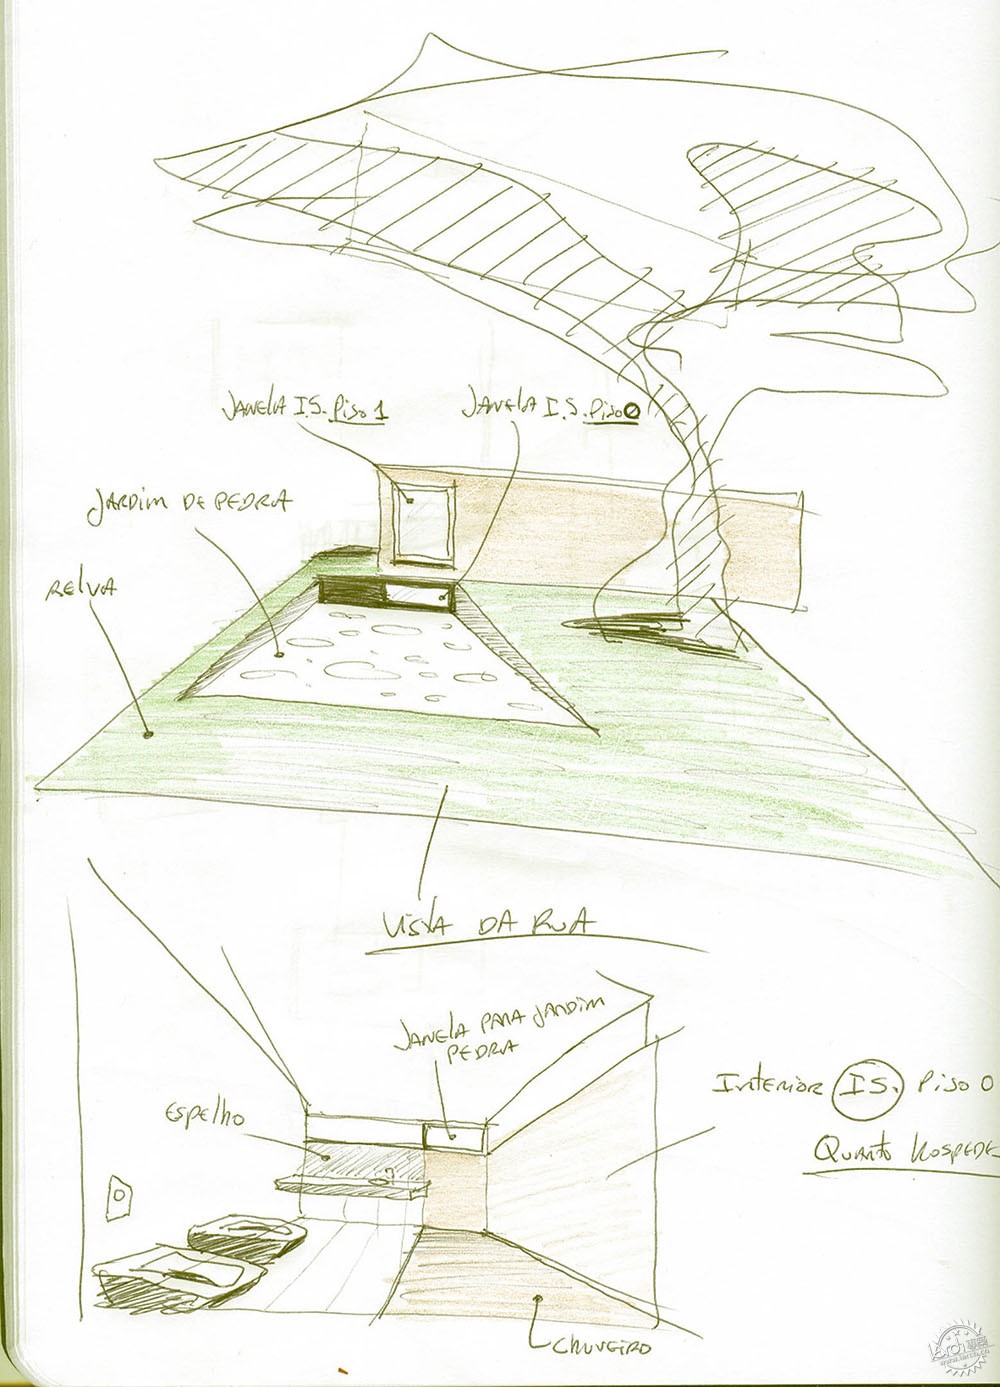 JANELA I.S. Piso 1
JANELA I.S. Piso 0
JARDIM DE PEDRA
RELVA
VISTA DA RUA
JANELA PARA JARDIM
PEDRA
ESPELHO
INTERIOR I.S. Piso 0
QUARTO HOSPEDE
CHUVEIRO